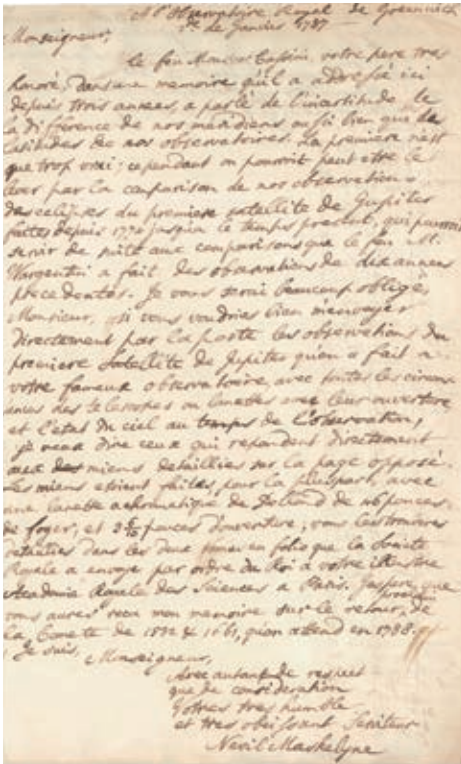 A l'Observatoire Royal de Greenwich
de Janvier 1787
Monseigneur,
le feu Monsieur Cassini, votre pere tres
honoré, dans une memoire qu'il a addressé ici
depuis trois annees, a parlé de l'incertitude de
la difference de nos meridiens aussi bien que de
latitudes de nos observatoires. La premiere n'est
que trop vrai; cependant on pourroit peut etre le
lever par la comparison de nos observations
des eclipses du premiere satellite de Jupiter
faites depuis 1770 jusqu'a le temps present, qui pourroit
servir de suite aux comparisons que le feu M.
Wargentin a fait des observations de dix annees
precedentes. Je vous serai beaucoup obligé,
Monsieur, si vous voudries bien m'envoyer
directement par la poste les observations du
premiere satellite de Jupiter qu'on a fait a
votre fameux observatoire, avec toutes les circum
ances des telescopes ou lunettes avec leur ouverture
et l'etat du ciel au temps de l'observation,
je veux dire ceux qui repondent directement
aux des miens detaillies sur la page opposé.
Les miens etoient faites, pour la pluspart, avec
une lunette achromatique de Dollond de 46 pouces
de foyer, et pouces d'ouverture; vous les trouveres
detaillies dans les deux tomes en folio que la Societé
Royale a envoyé par ordre du Roi a votre illustre
Academie Royale des Sciences a Paris. J'espere que
vous aures recu mon memoire sur le retour, de
la Comete de 1532 & 1661, qu'on attend en 1788.
Je suis,
Monseigneur,
Avec autant de respect
que de consideration
Votres tres humble
et tres obeissant Serviteur
Nevil Maskelyne